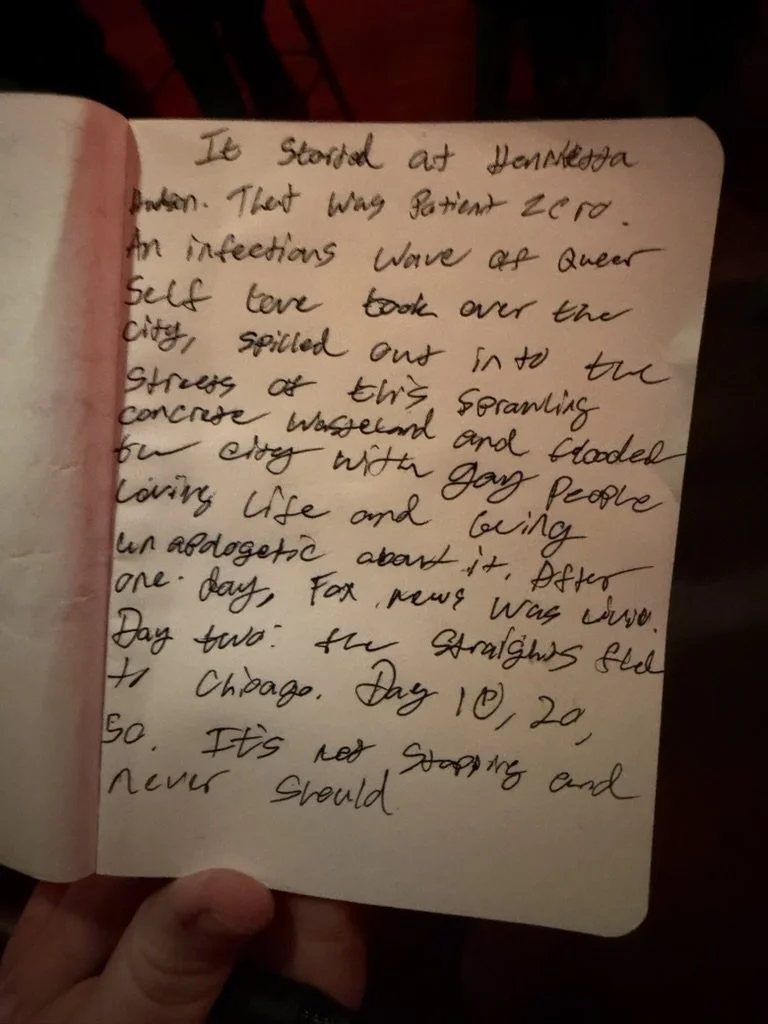 It started at Henrietta
Hudson. That was Patient zero.
An infectious wave of Queer
Self Love took over the
city, spilled out into the
streets of this sprawling
concrete wasteland and flooded
the city with gay People
Loving Life and being
unapologetic about it. After
one day, Fox news was
Day two: the straights fled
to Chicago. Day 10, 20,
50. It's not stopping and
never should